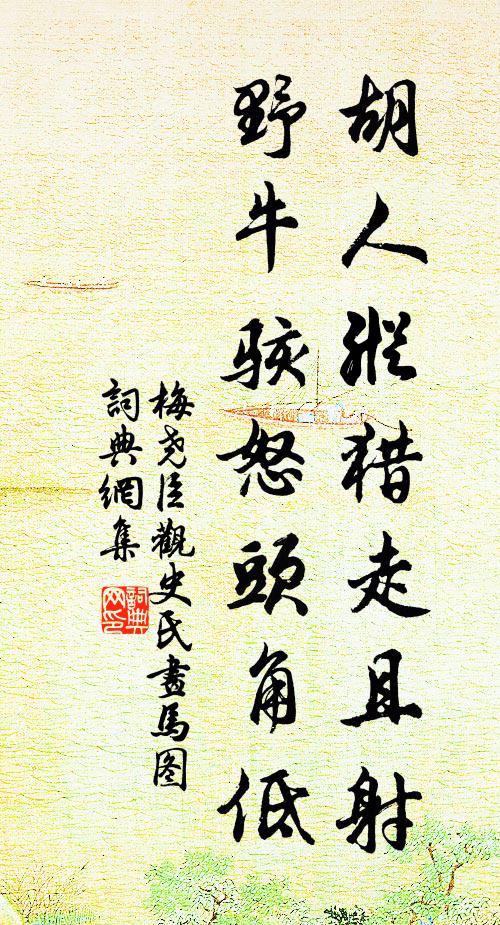 胡人縱猎走且射
野牛駭怒頭角低
梅堯臣觀史氏畫馬图
詞典網集
詞典网印